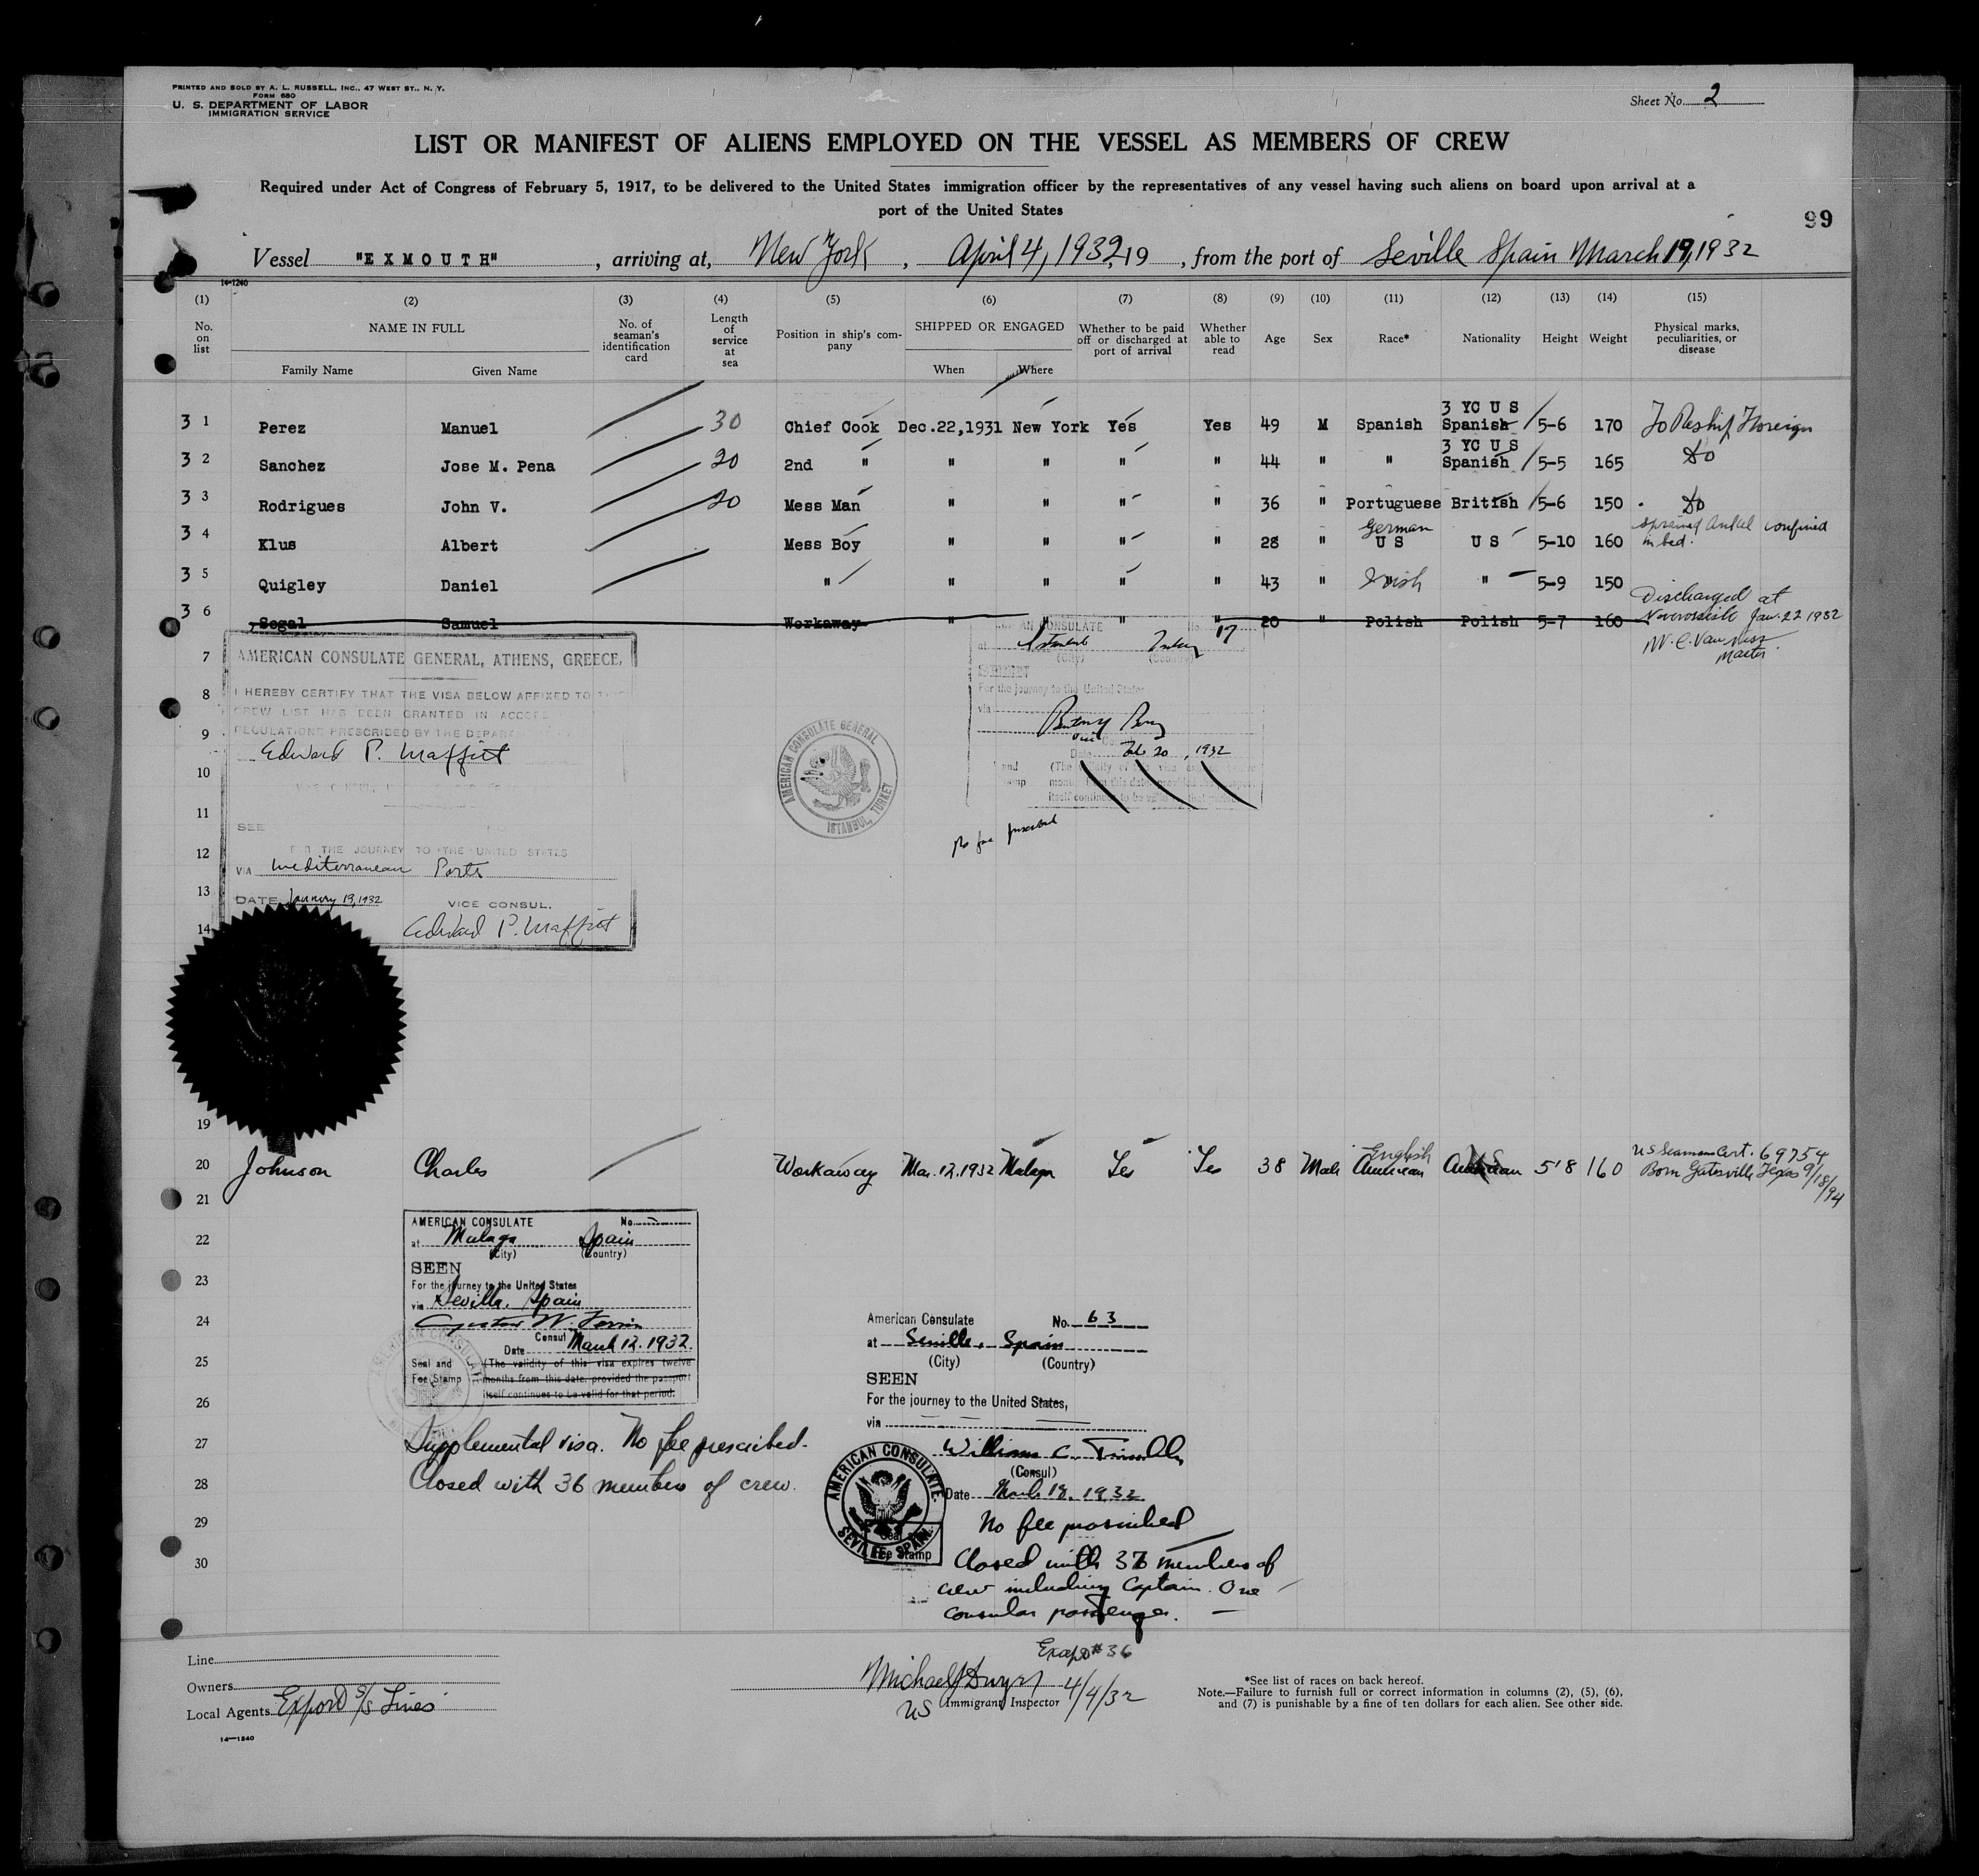 PRINTED AND SOLD BY A. L. RUSSELL, INC., 47 WEST ST., N. Y.
FORM 680
U. S. DEPARTMENT OF LABOR
IMMIGRATION SERVICE
Sheet No. 2
LIST OR MANIFEST OF ALIENS EMPLOYED ON THE VESSEL AS MEMBERS OF CREW
Required under Act of Congress of February 5, 1917, to be delivered to the United States immigration officer by the representatives of any vessel having such aliens on board upon arrival at a
port of the United States
99
Vessel "EXMOUTH", arriving at, New York, April 4, 1932, 19, from the port of Seville Spain March 19, 1932
14-1240
(1) (2) (3) (4) (5) (6) (7) (8) (9) (10) (11) (12) (13) (14) (15)
No. on list NAME IN FULL No. of seaman's identification card Length of service at sea Position in ship's company SHIPPED OR ENGAGED Whether to be paid off or discharged at port of arrival Whether able to read Age Sex Race* Nationality Height Weight Physical marks, peculiarities, or disease
Family Name Given Name When Where
3 YC U S
3 1 Perez Manuel 30 Chief Cook Dec.22,1931 New York Yes Yes 49 M Spanish Spanish 5-6 170 To Reship Foreign
3 YC U S
3 2 Sanchez Jose M. Pena 20 2nd " " " " " 44 " " Spanish 5-5 165 Do
3 3 Rodrigues John V. 20 Mess Man " " " " 36 " Portuguese British 5-6 150 Do
German sprained Ankel confined
3 4 Klus Albert Mess Boy " " " " 28 " U S U S 5-10 160 in bed.
3 5 Quigley Daniel " " " " " 43 " Irish " 5-9 150
Discharged at
3 6 Segal Samuel Workaway " " " " 20 " Polish Polish 5-7 160 Novorossisk Jan. 22 1932
W. C. Van Ness
Master
7
8
9
10
11
12
13
14
AMERICAN CONSULATE GENERAL, ATHENS, GREECE.
I HEREBY CERTIFY THAT THE VISA BELOW AFFIXED TO
CREW LIST HAS BEEN GRANTED IN
REGULATIONS PRESCRIBED BY THE
Edward P. Maffitt
SEE NO.
FOR THE JOURNEY TO THE UNITED STATES
VIA Mediterranean Ports
DATE January 19, 1932 VICE CONSUL.
Edward P. Maffitt
AMERICAN CONSULATE GENERAL
ISTANBUL, TURKEY
CONSULATE No. 17
at Istanbul Turkey
(City) (Country)
For the journey to the United States
via
Date Feb 20, 1932
No fee prescribed
19
20 Johnson Charles Workaway Mar. 12, 1932 Malaga Yes Yes 38 Male English American American US 5'8 160 US Seamans Cert. 69754
Born Gatesville Texas 9/18/94
21
22
23
24
25
26
27
28
29
30
AMERICAN CONSULATE No.
at Malaga Spain
(City) (Country)
SEEN
For the journey to the United States
via Seville, Spain
Consul
Date March 12. 1932.
Seal and Fee Stamp
(The validity of this visa expires twelve
months from this date, provided the passport
itself continues to be valid for that period.
Supplemental visa. No fee prescribed.
Closed with 36 members of crew.
American Consulate No. 63
at Seville, Spain
(City) (Country)
SEEN
For the journey to the United States,
via
William C. Trimble
(Consul)
Date March 18. 1932
AMERICAN CONSULATE.
SEVILLE, SPAIN.
Fee Stamp
No fee prescribed
Closed with 36 members of
crew including Captain. One
consular passenger.
Line
Owners
Local Agents Export S/S Lines
14-1240
Except # 36
Michael J Dwyer 4/4/32
US Immigrant Inspector
*See list of races on back hereof.
Note.—Failure to furnish full or correct information in columns (2), (5), (6),
and (7) is punishable by a fine of ten dollars for each alien. See other side.